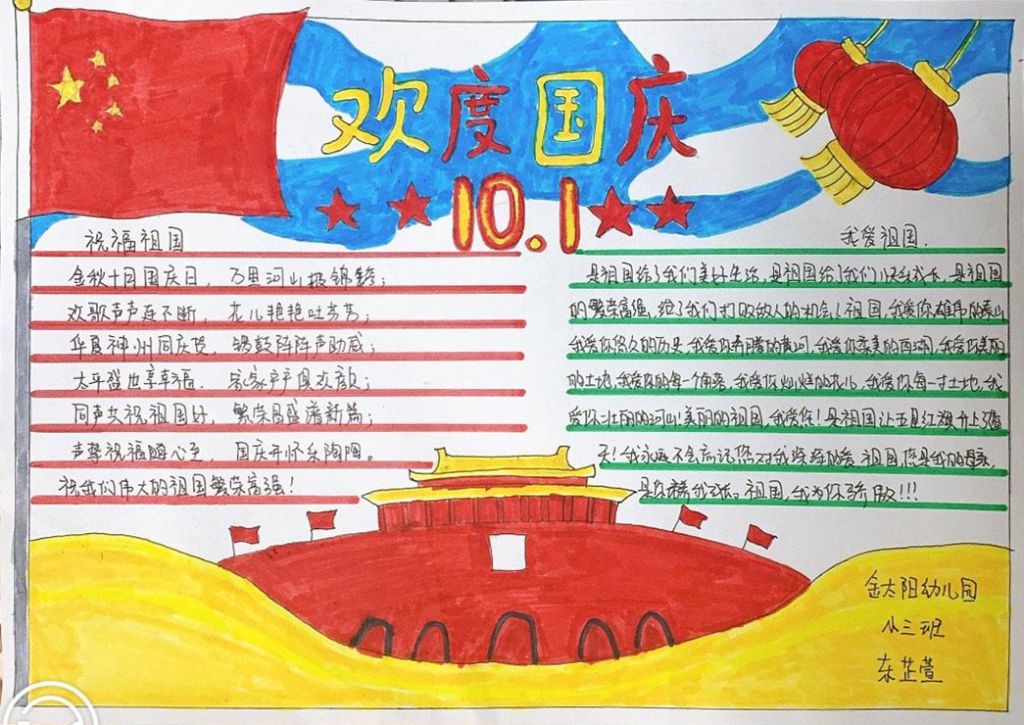 欢度国庆
10.1
祝福祖国
金秋十月国庆日，万里河山披锦艷；
欢歌声声在不断，花儿艳艳吐芳芳；
华夏神州同庆贺，锣鼓阵阵声助威；
太平盛世享幸福，家家户户俱欢歌；
同声共祝祖国好，繁荣昌盛谱新篇；
声声祝福随心至，国庆开怀乐陶陶。
祝我们伟大的祖国繁荣富强！
我爱祖国.
是祖国给了我们美好生活，是祖国给了我们快乐成长，是祖国
的繁荣富强，给了我们打败敌人的机会！祖国，我爱你雄伟的泰山，
我爱你悠久的历史，我爱你奔腾的黄河，我爱你柔美的西湖，我爱你美丽
的土地，我爱你的每一个角落，我爱你灿烂的花儿，我爱你每一寸土地，我
爱你壮丽的河山！美丽的祖国，我爱您！是祖国让五星红旗升上了蓝
天！我永远不会忘记您对我深深的爱，祖国您是我的母亲，
是你精我成。祖国，我为你骄傲！！！
金太阳幼儿园
小三班
东芷萱